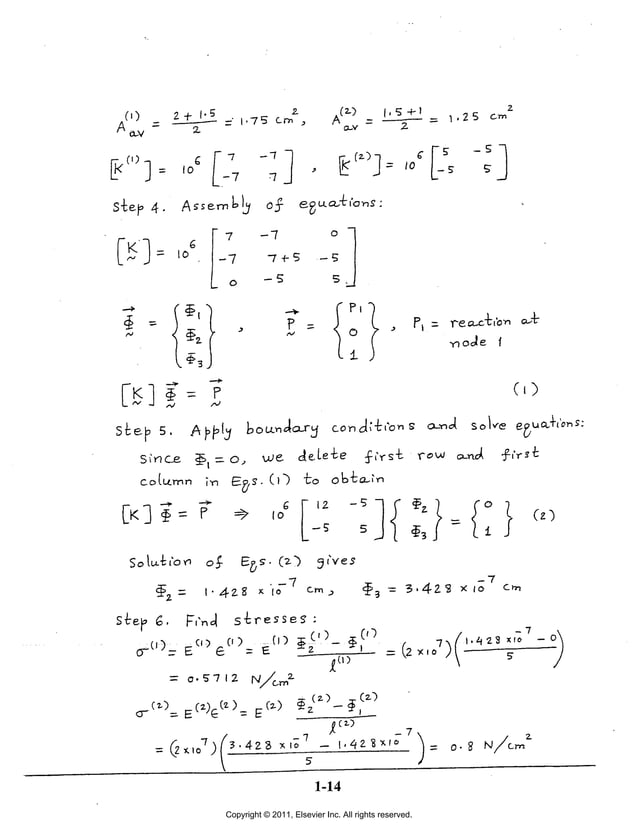 A_av^(1) = (2 + 1.5)/2 = 1.75 cm², A_av^(2) = (1.5 + 1)/2 = 1.25 cm²
[K^(1)] = 10^6 [7 -7; -7 7], [K^(2)] = 10^6 [5 -5; -5 5]
Step 4. Assembly of equations:
[K] = 10^6 [7 -7 0; -7 7+5 -5; 0 -5 5]
Φ⃗ = {Φ₁; Φ₂; Φ₃}, P⃗ = {P₁; 0; 1}, P₁ = reaction at
node 1
[K] Φ⃗ = P⃗ (1)
Step 5. Apply boundary conditions and solve equations:
Since Φ₁ = 0, we delete first row and first
column in Eqs. (1) to obtain
[K] Φ⃗ = P⃗ ⇒ 10^6 [12 -5; -5 5] {Φ₂; Φ₃} = {0; 1} (2)
Solution of Eqs. (2) gives
Φ₂ = 1.428 × 10^-7 cm, Φ₃ = 3.428 × 10^-7 cm
Step 6. Find stresses:
σ^(1) = E^(1) ε^(1) = E^(1) (Φ₂^(1) - Φ₁^(1))/l^(1) = (2 × 10^7) ((1.428 × 10^-7 - 0)/5)
= 0.5712 N/cm²
σ^(2) = E^(2) ε^(2) = E^(2) (Φ₂^(2) - Φ₁^(2))/l^(2)
= (2 × 10^7) ((3.428 × 10^-7 - 1.428 × 10^-7)/5) = 0.8 N/cm²
1-14
Copyright © 2011, Elsevier Inc. All rights reserved.